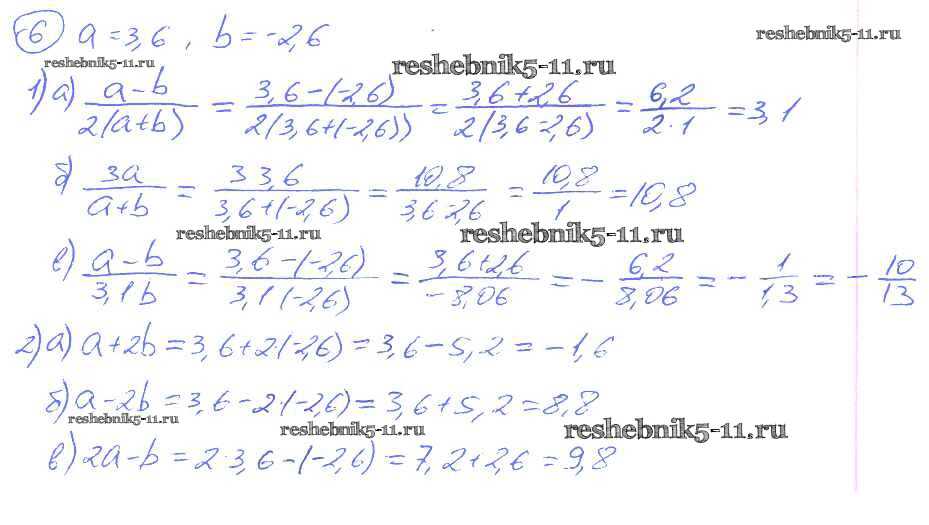 6 a = 3,6 , b = -2,6
reshebnik5-11.ru
reshebnik5-11.ru
reshebnik5-11.ru
1) а) (a-b)/(2(a+b)) = (3,6-(-2,6))/(2(3,6+(-2,6))) = (3,6+2,6)/(2(3,6-2,6)) = 6,2/(2·1) = 3,1
б) 3a/(a+b) = (3 3,6)/(3,6+(-2,6)) = 10,8/(3,6-2,6) = 10,8/1 = 10,8
reshebnik5-11.ru
reshebnik5-11.ru
в) (a-b)/(3,1b) = (3,6-(-2,6))/(3,1(-2,6)) = (3,6+2,6)/(-8,06) = -6,2/8,06 = -1/1,3 = -10/13
2) а) a+2b = 3,6+2·(-2,6) = 3,6-5,2 = -1,6
б) a-2b = 3,6-2·(-2,6) = 3,6+5,2 = 8,8
reshebnik5-11.ru
reshebnik5-11.ru
reshebnik5-11.ru
в) 2a-b = 2·3,6-(-2,6) = 7,2+2,6 = 9,8